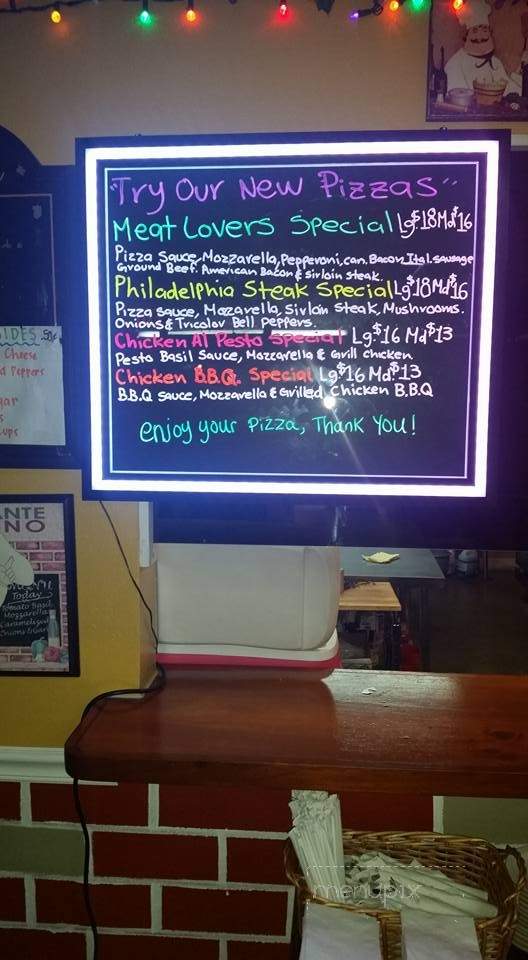 "Try Our New Pizzas"
Meat Lovers Special Lg.$18 Md$16
Pizza Sauce, Mozzarella, Pepperoni, can. Bacon, Ital. sausage
Ground Beef. American Bacon & Sirloin steak.
Philadelphia Steak Special Lg$18 Md$16
Pizza Sauce, Mozarella, Sirloin Steak, Mushrooms.
Onions & Tricolor Bell Peppers.
Chicken Al Pesto Special Lg.$16 Md$13
Pesto Basil Sauce, Mozzarella & Grill chicken
Chicken B.B.Q. Special Lg$16 Md.$13
B.B.Q Sauce, Mozzarella & Grilled Chicken B.B.Q
enjoy your Pizza, Thank You!
IDES .50¢
Cheese
d Peppers
gar
s
ups
ANTE
NO
Today
Tomato Basil
Mozzarella
Caramelized
Onions
menupix